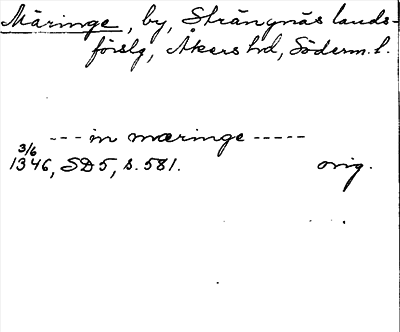 Märinge, by, Strängnäs lands-
förslg, Åkers hd, Söderm. l.
--- in mæringe -----
3/6
1346, SD5, s. 581. orig.